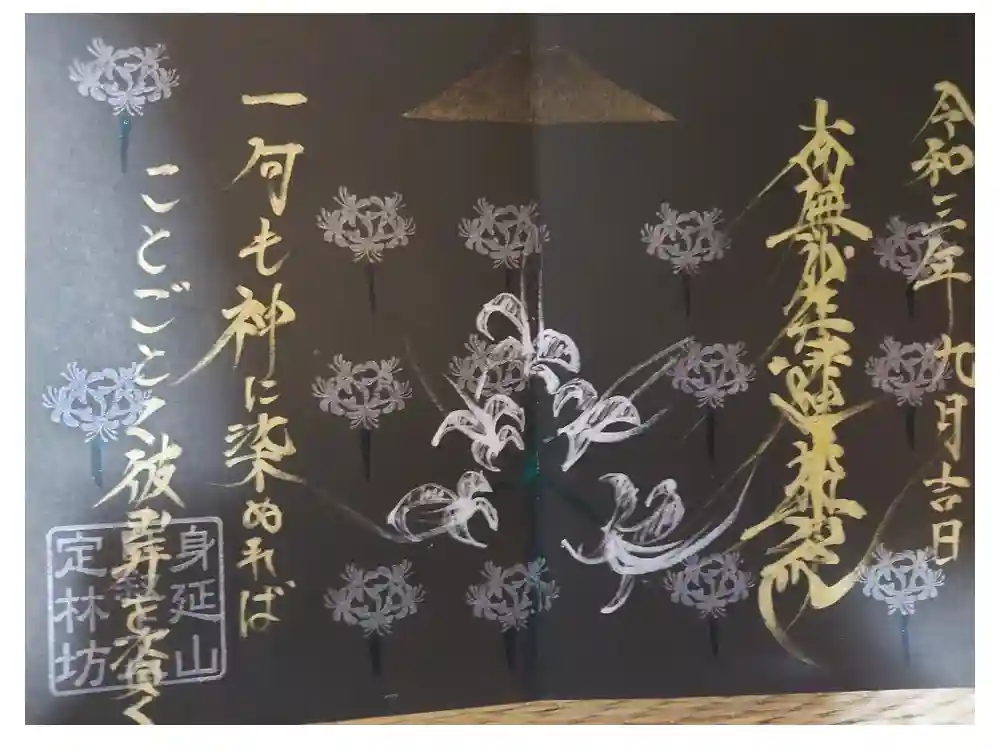 令和三年九月吉日
南無妙法蓮華経
一向も神に染ぬれば
ことごとく彼昇を資く
身延山
定林坊